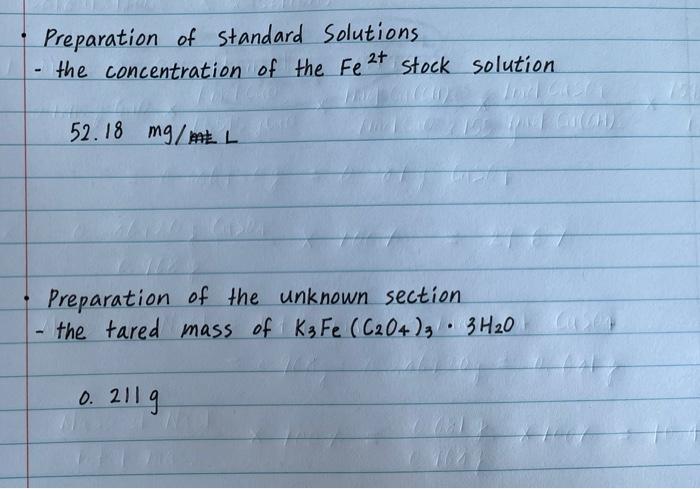 • Preparation of Standard Solutions
- the concentration of the Fe²⁺ stock solution
52.18 mg/ L
• Preparation of the unknown section
- the tared mass of K₃Fe(C₂O₄)₃ · 3H₂O
0.211g